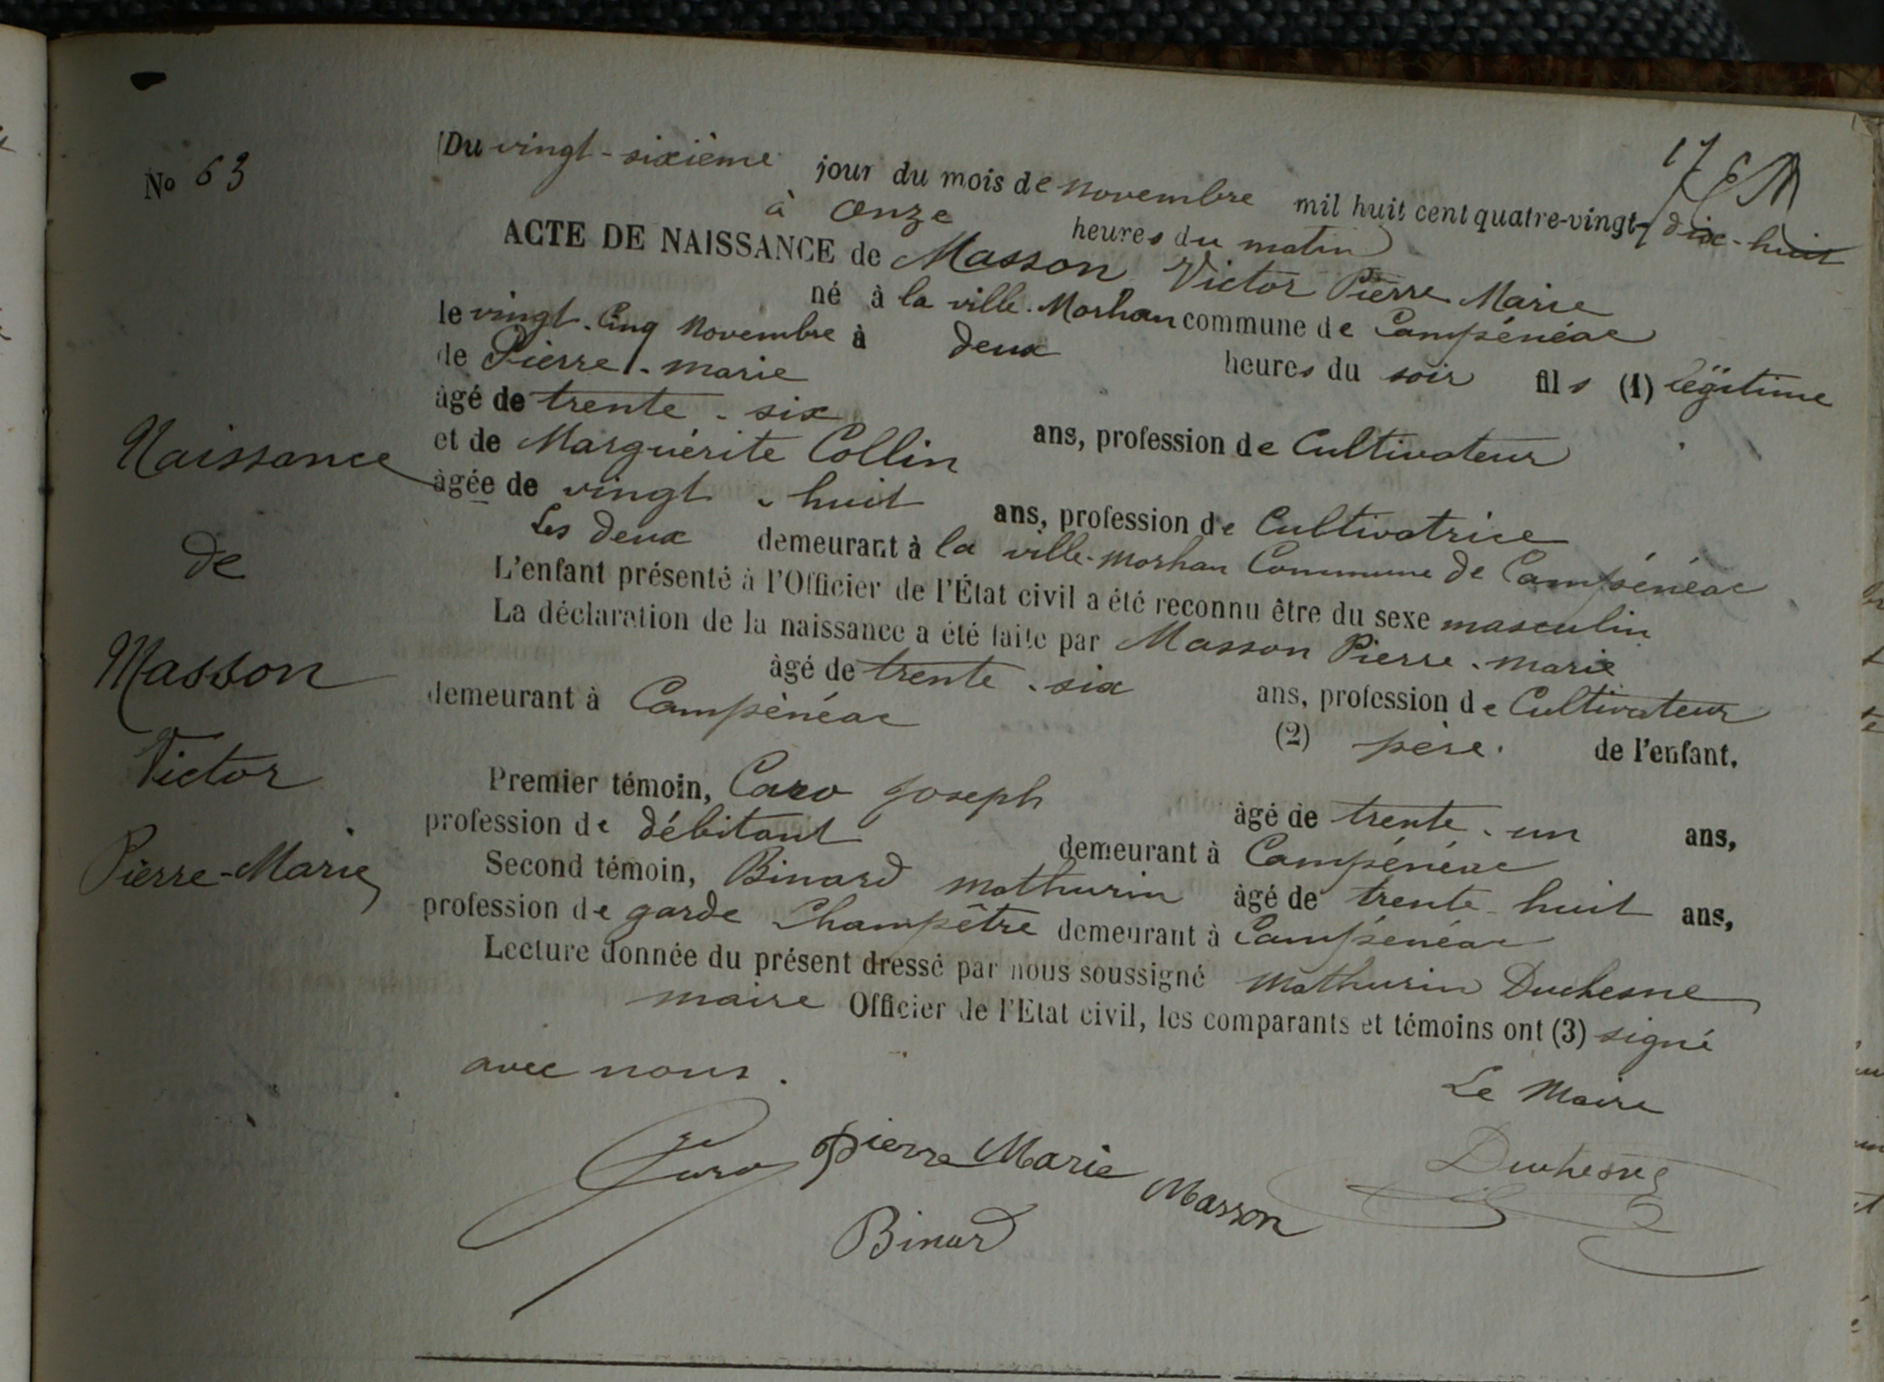 17
No 63
Du vingt-sixième jour du mois de novembre mil huit cent quatre-vingt-dix-huit
à onze heures du matin
ACTE DE NAISSANCE de Masson Victor Pierre Marie
né à la ville-Morhan commune de Campénéac
le vingt-cinq Novembre à deux heures du soir fils (1) légitime
de Pierre-marie
âgé de trente-six ans, profession de Cultivateur
et de Marguérite Collin
âgée de vingt-huit ans, profession de Cultivatrice
Les deux demeurant à la ville-morhan Commune de Campénéac
L'enfant présenté à l'Officier de l'État civil a été reconnu être du sexe masculin
La déclaration de la naissance a été faite par Masson Pierre-marie
âgé de trente-six ans, profession de Cultivateur
demeurant à Campénéac (2) père. de l'enfant.
Premier témoin, Caro Joseph âgé de trente-un ans,
profession de débitant demeurant à Campénéac
Second témoin, Binard mathurin âgé de trente-huit ans,
profession de garde Champêtre demeurant à Campénéac
Lecture donnée du présent dressé par nous soussigné Mathurin Duchesne
maire Officier de l'Etat civil, les comparants et témoins ont (3) signé
avec nous.
Le Maire
Caro Pierre Marie Masson Duchesne
Binard
Naissance
de
Masson
Victor
Pierre-Marie